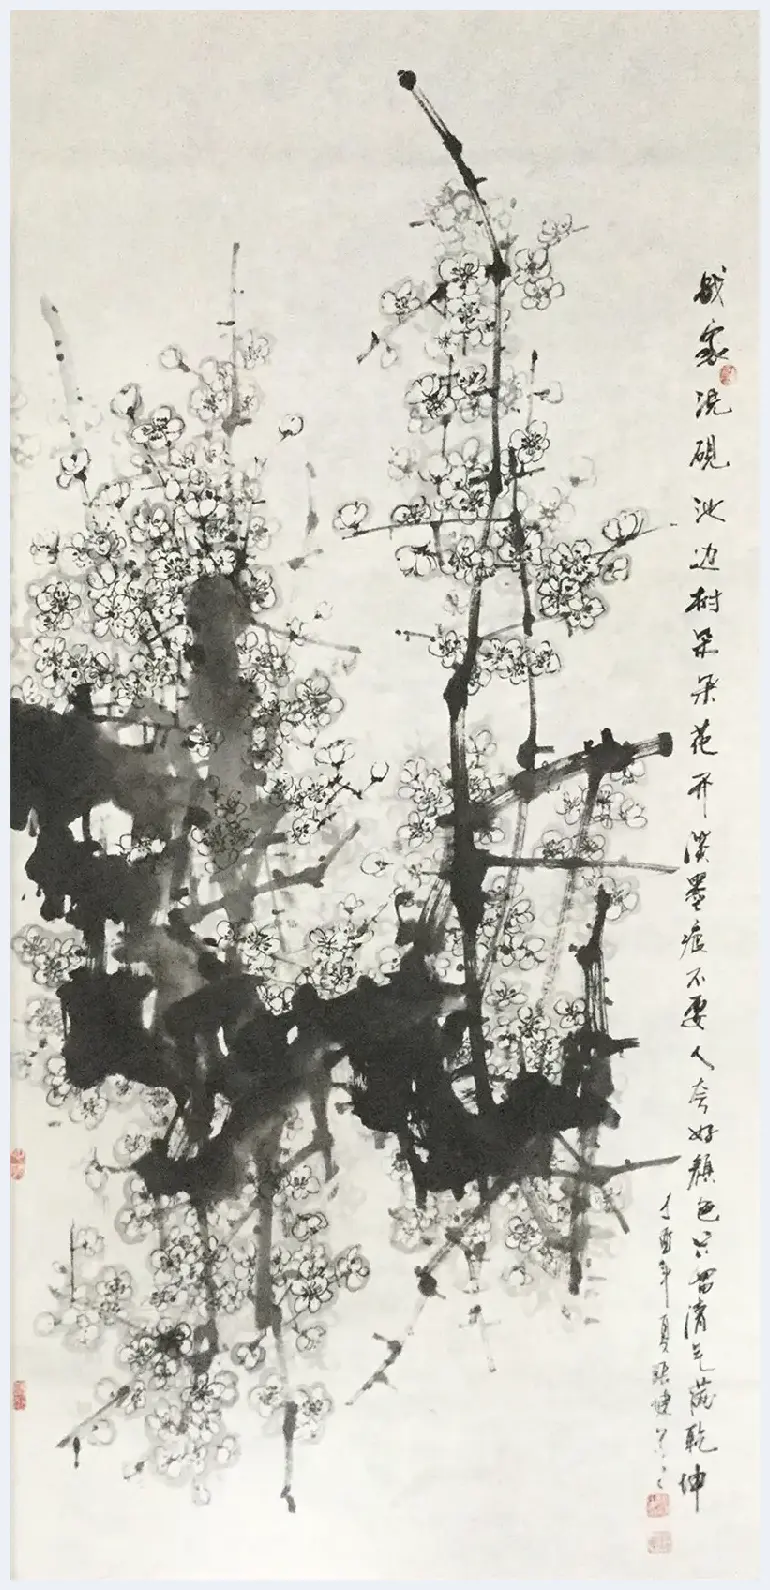 我家洗硯池边树朵朵花开淡墨痕不要人夸好颜色只留清气满乾坤
丁酉年夏张健写之